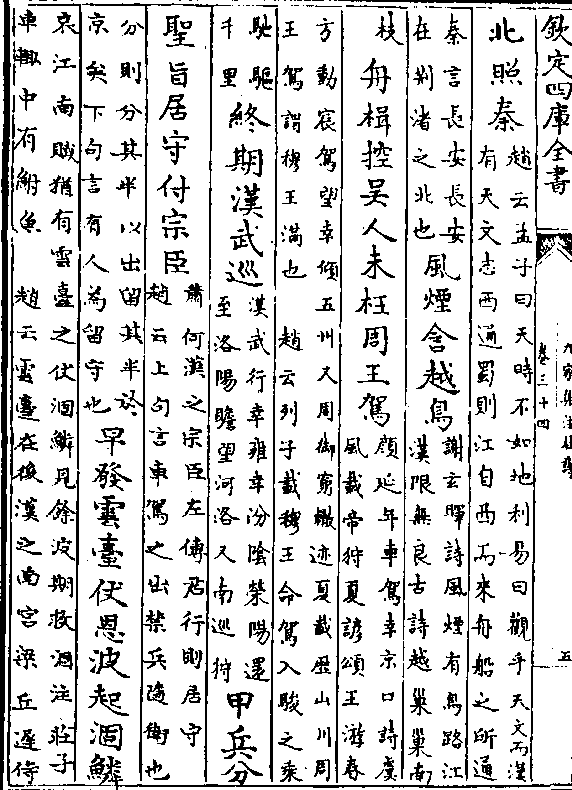 欽定四庫全書
九家集注杜詩
卷三十四
五
北照秦
趙云孟子曰天時不如地利易曰觀乎天文而漢
有天文志西通蜀則江自西而來舟船之所通
秦言長安長安
在荆渚之北也
風煙含越鳥
謝玄暉詩風煙有鳥路江
漢限無良古詩越巢巢南
枝
舟楫控吳人未枉周王駕
顏延年車駕幸京口詩虞
風載帝狩夏諺頌王游春
方動宸駕望幸傾五州又周御窮轍迹夏載歷山川周
王駕謂穆王滿也 趙云列子載穆王命駕入駿之乘
馳驅
千里
終期漢武巡
漢武行幸雍幸汾陰滎陽還
至洛陽瞻望河洛又南巡狩
甲兵分
聖旨居守付宗臣
蕭何漢之宗臣左傳君行則居守
趙云上句言車駕之出禁兵隨衛也
分則分其半以出留其半於
京矣下句言有人為留守也
早發雲臺伏恩波起涸鱗
哀江南賦猶有雲臺之伏涸鱗見餘波期救涸注莊子
車輙中有鮒魚 趙云雲臺在後漢之南宮梁丘遲侍